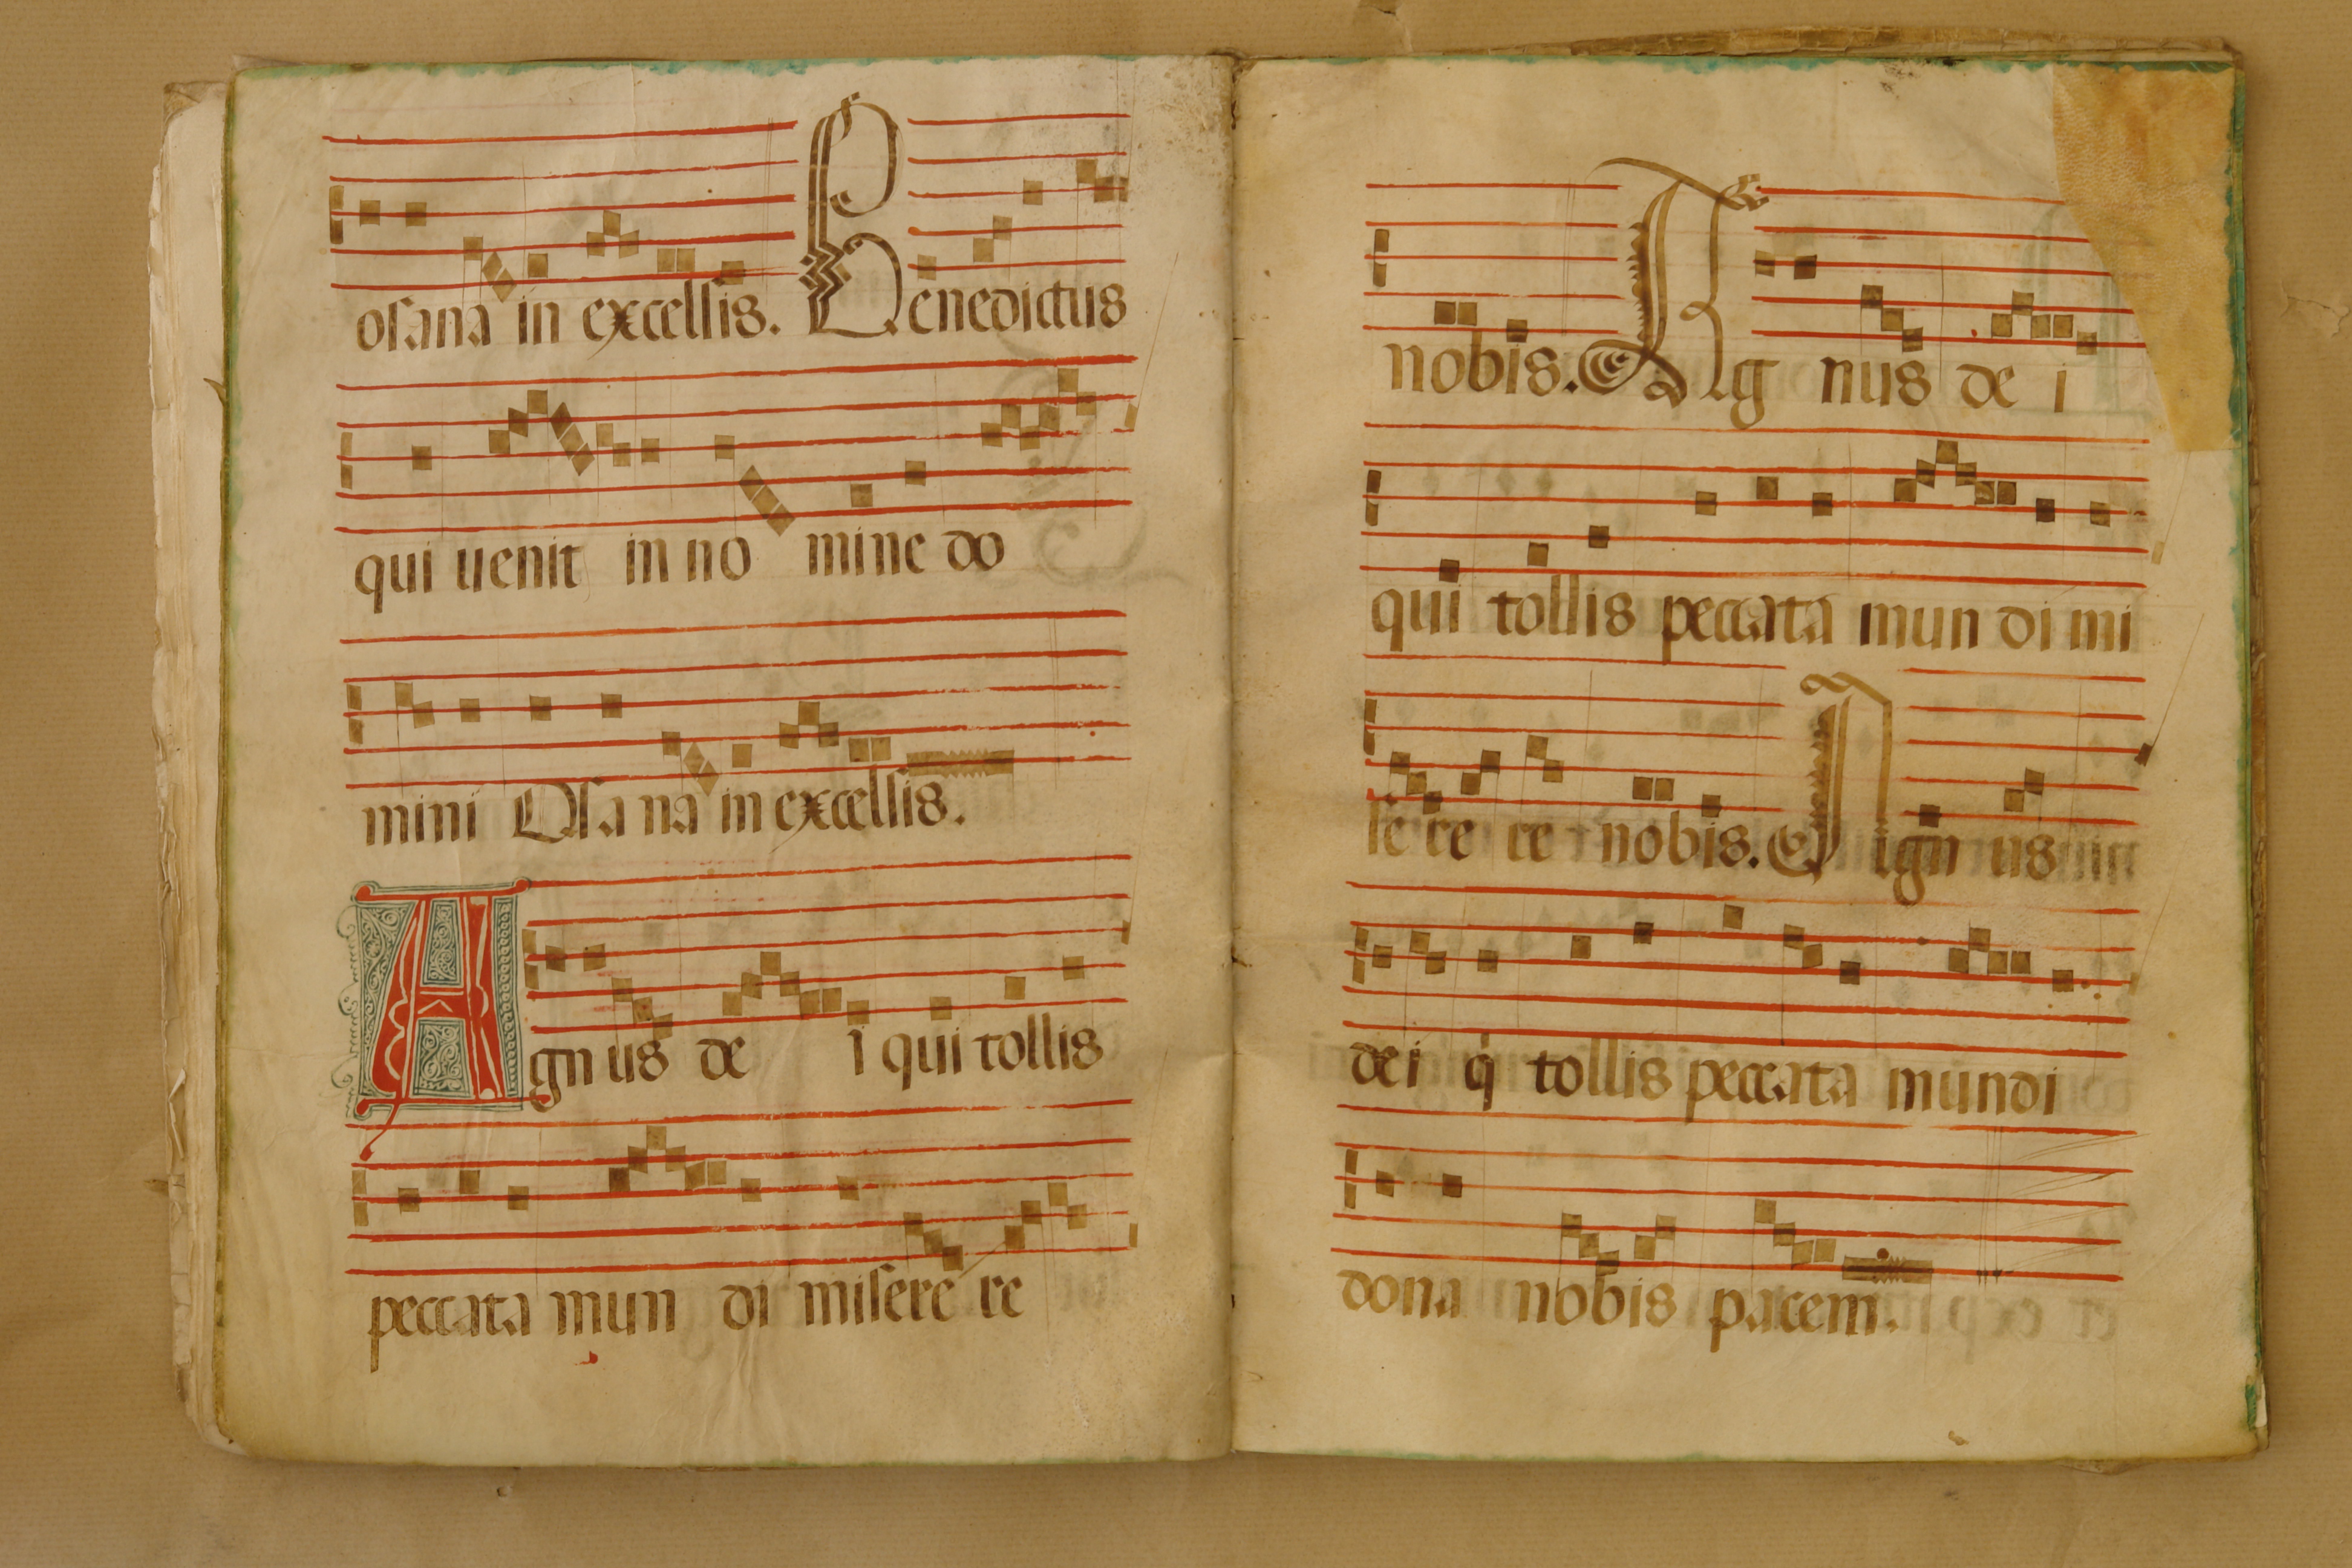 osana in excelsis. Benedictus
qui uenit in no mine do
mini Osa na in excelsis.
Agn us de i qui tollis
peccata mun di misere re
nobis. Ag nus de i
qui tollis peccata mun di mi
se re re nobis. Agn us
dei q̇ tollis peccata mundi
dona nobis pacem.